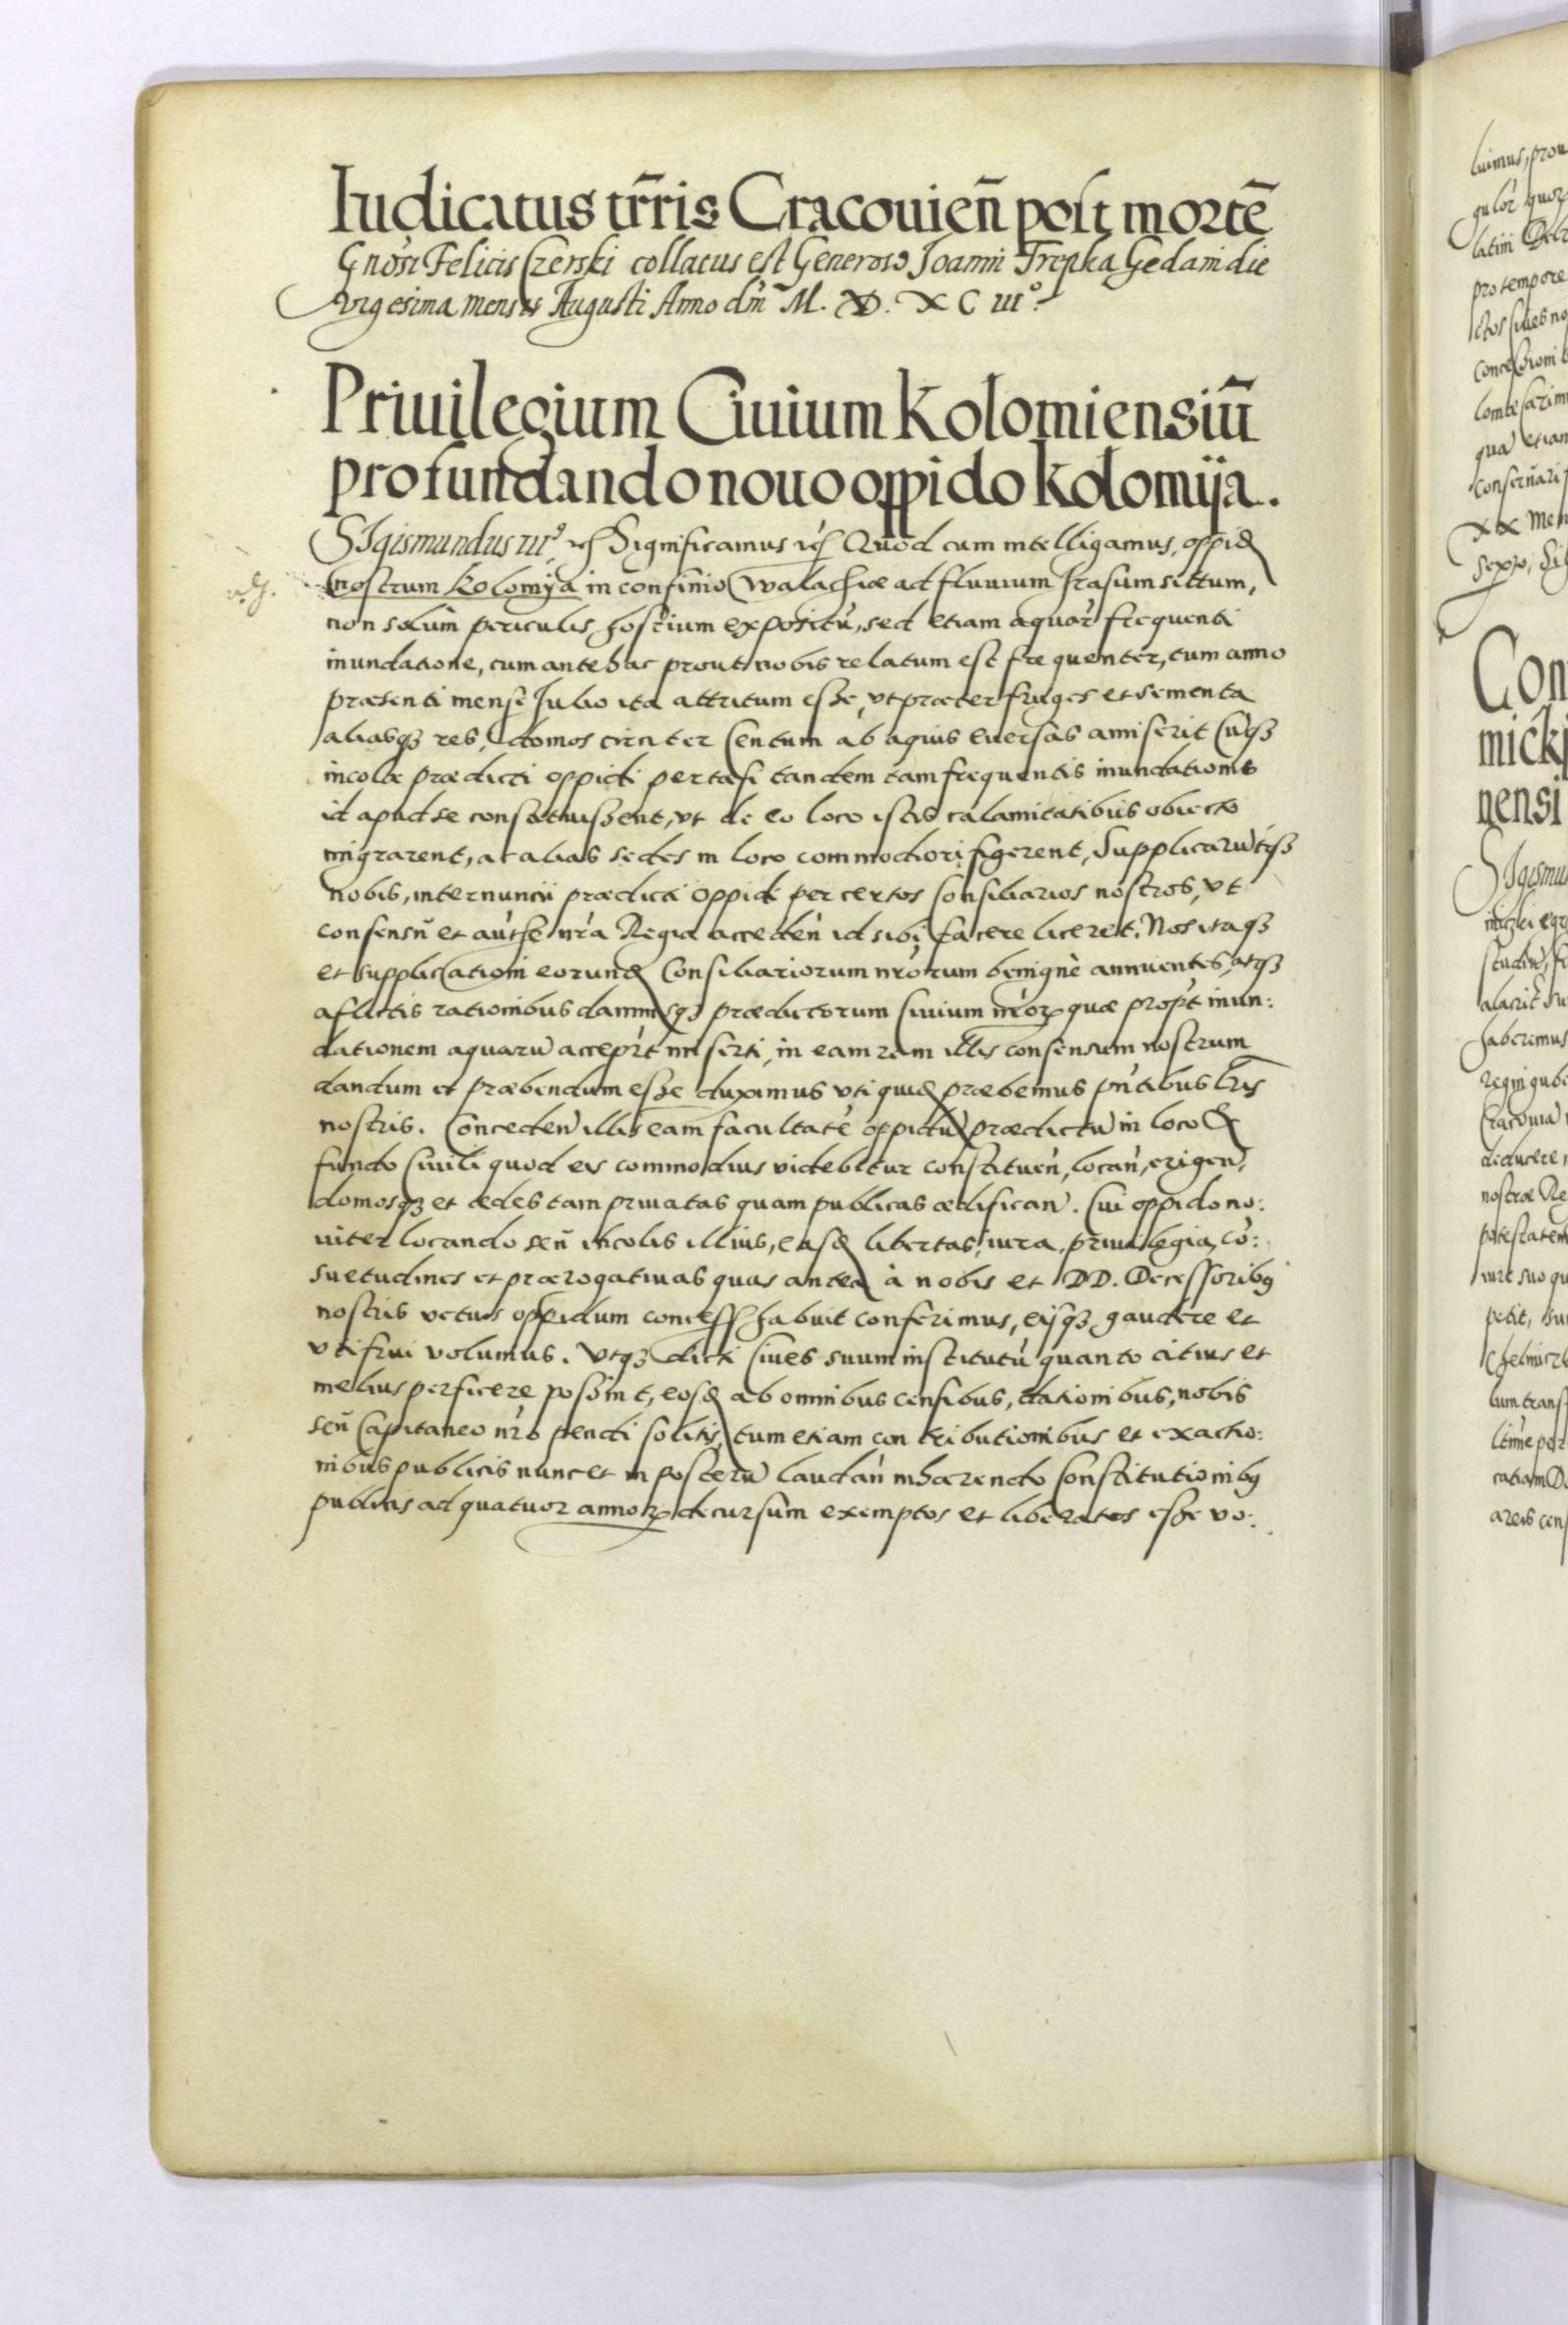 Iudicatus tr̃ris Cracouień post mortē
Gnosi Felicis Czerski collatus est Generoso Joanni Trepka Gedani die
vigesima mensis Augusti Anno dm̃ M. D. XC III°
Priuilegium Ciuium Kolomiensiũ
pro fundando nouo oppido Kolomija.
SIgismundus III⁹ Significamus Quod cum intelligamus, oppid
nostrum Kolomÿa in confinio Walachiæ ad fluuium situm,
non solùm periculis hostium expositù, sed etiam aquar̀ frequenti
inundatione, cum antehac prout nobis relatum est frequenter, tum anno
præsenti mense Julio ita attritum esse, vt præter fruges et sementa
aliasqȝ res, domos circiter Centum ab aquis euersas amiserit Cùqȝ
incolæ prædicti oppidi pertæsi tandem tam frequentis inundationis
id apud se constituissent, vt de eo loco istis calamitatibus obiecto
migrarent, ac alias sedes in loco commodiori figerent, Supplicarùtqȝ
nobis, internuncii prædicti oppidi per certos Consiliarios nostros, vt
consensũ et autħe nr̀a Regia acceden̄ id sibi facere liceret. Nos itaqȝ
et supplicationi eorund Consiliariorum nr̀orum benignè annuentes, atqȝ
aflictis rationibus damnisqȝ prædictorum Ciuium nr̀oꝝ quæ propt̀ inun:
dationem aquarù accepr̀t miserti, in eam rem illis consensum nostrum
dandum et præbendum esse duximus vti quid præbemus pn̄tibus Lr̄is
nostris. Conceden̄ illis eam facultatē oppidù prædictù in loco &
fundo Ciuili quod eis commodius videbitur constituen̄, locan̄, erigen̄,
domosqȝ et ædes tam priuatas quam publicas ædifican̄. Cui oppido no:
uiter locando seũ incolis illius, easd libertas, iura, priuilegia, cō:
suetudines et prærogatiuas quas antea à nobis et DD. Decessoribꝰ
nostris vetus oppidum concess habuit conferimus, eÿqȝ gaudere et
vti frui volumus. Vtqȝ dicti Ciues suum institutù quanto citius et
melius perficere possint, eosd ab omnibus censibus, dationibus, nobis
seũ Capitaneo nr̀o pendi solitis, tum etiam contributionibus et exactio:
nibus publicis nunc et in posterù laudan̄ inhærendo Constitutionibꝰ
publicis ad quatuor annoꝝ decursum exemptos et liberatos esse vo: